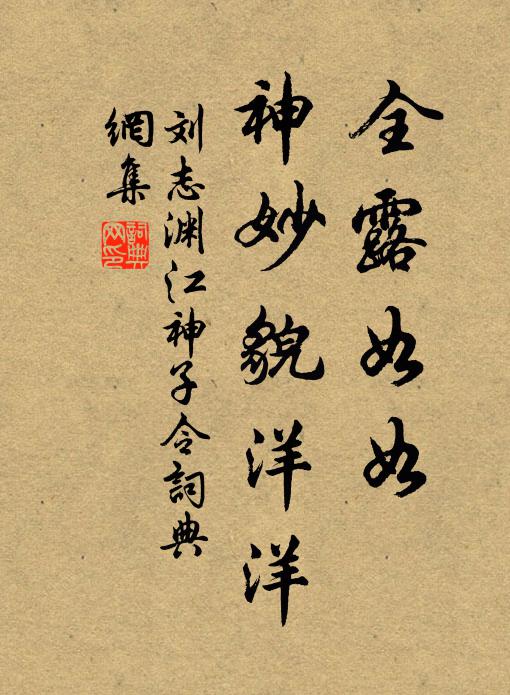 全露如如
神妙貌洋洋
刘志渊江神子令詞典
網集
詞典
网印